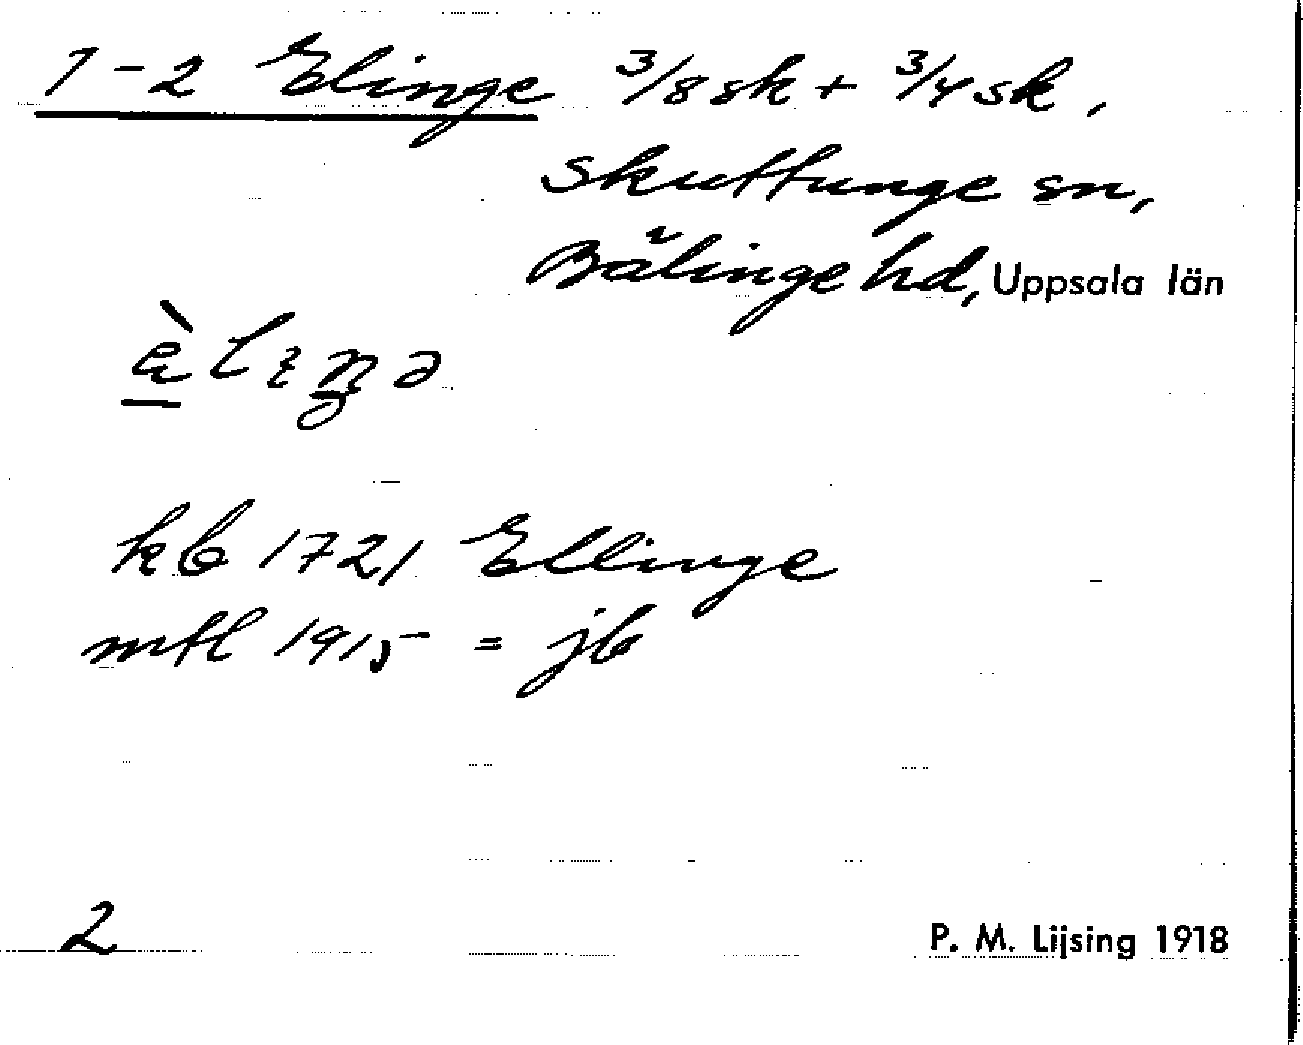 1-2 Elinge 3/8 sk + 3/4 sk,
Skuttunge sn,
Bälinge hd, Uppsala län
kb 1721 Ellinge
mtl 1915 = jb
2
P. M. Lijsing 1918